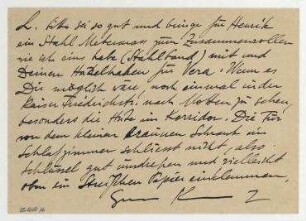 L. bitte sei so gut und bringe für Henrik
ein Stahl Metermass zum Zusammenrollen
wie ich eins habe (Stahlband) mit und
Deinen Häkelhaken für Vera. Wenn es
Dir möglich wäre, noch einmal in der
Kaiser Friedrichstr. nach Noten zu sehen,
besonders die Kiste im Korridor. Die Tür
von dem kleinen braunen Schrank im
Schlafzimmer schliesst nicht, also
Schlüssel gut umdrehen und vielleicht
oben ein Streifchen Papier einklemmen,